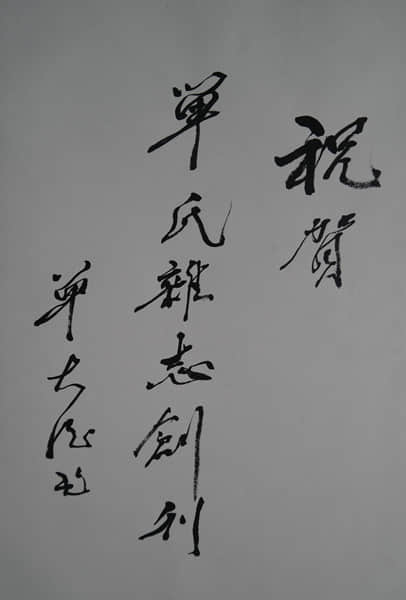 祝賀
單氏雜志創刊
單大